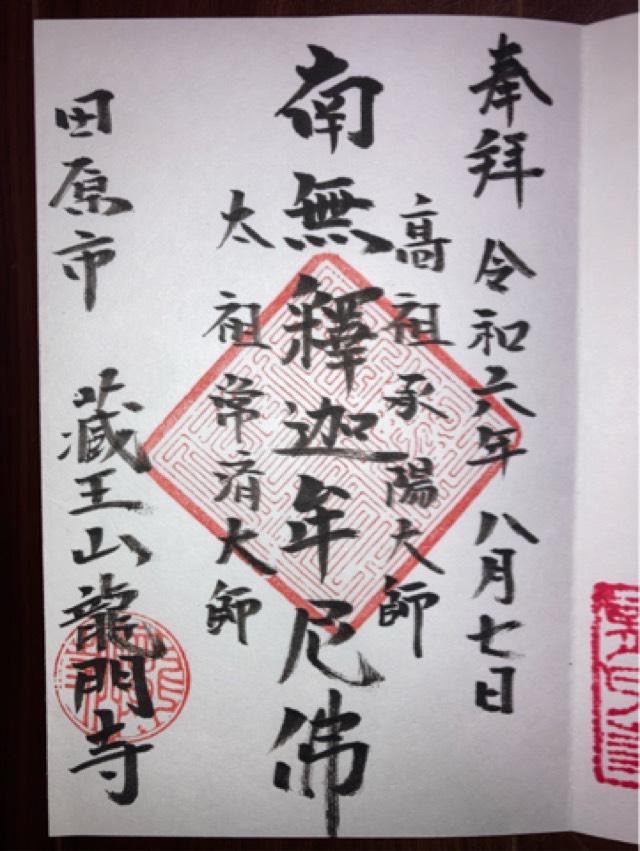 奉拝 令和六年 八月七日
高祖承陽大師
南無釋迦牟尼佛
太祖常済大師
田原市 蔵王山龍門寺